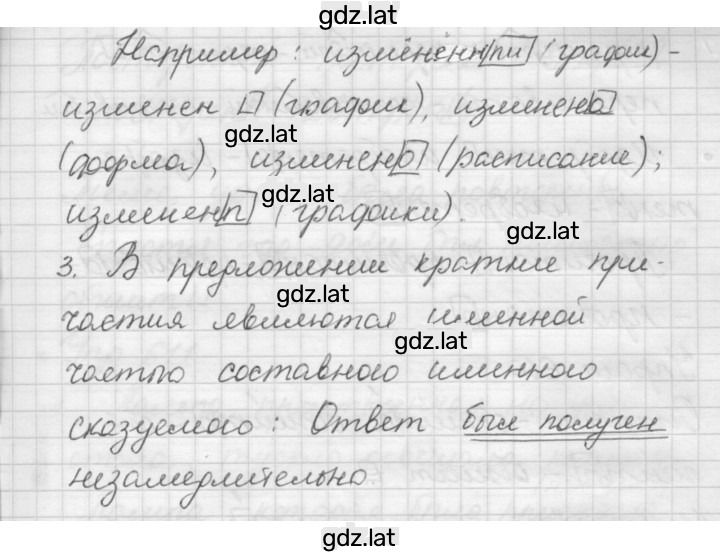 gdz.lat
Например: изменённ пи (график) -
изменен (график), изменен а
gdz.lat
(форма), изменен о (расписание);
gdz.lat
изменен п (графики).
gdz.lat
3. В предложении краткие при-
gdz.lat
частия являются именной
gdz.lat
частью составного именного
сказуемого: Ответ был получен
незамедлительно
gdz.lat